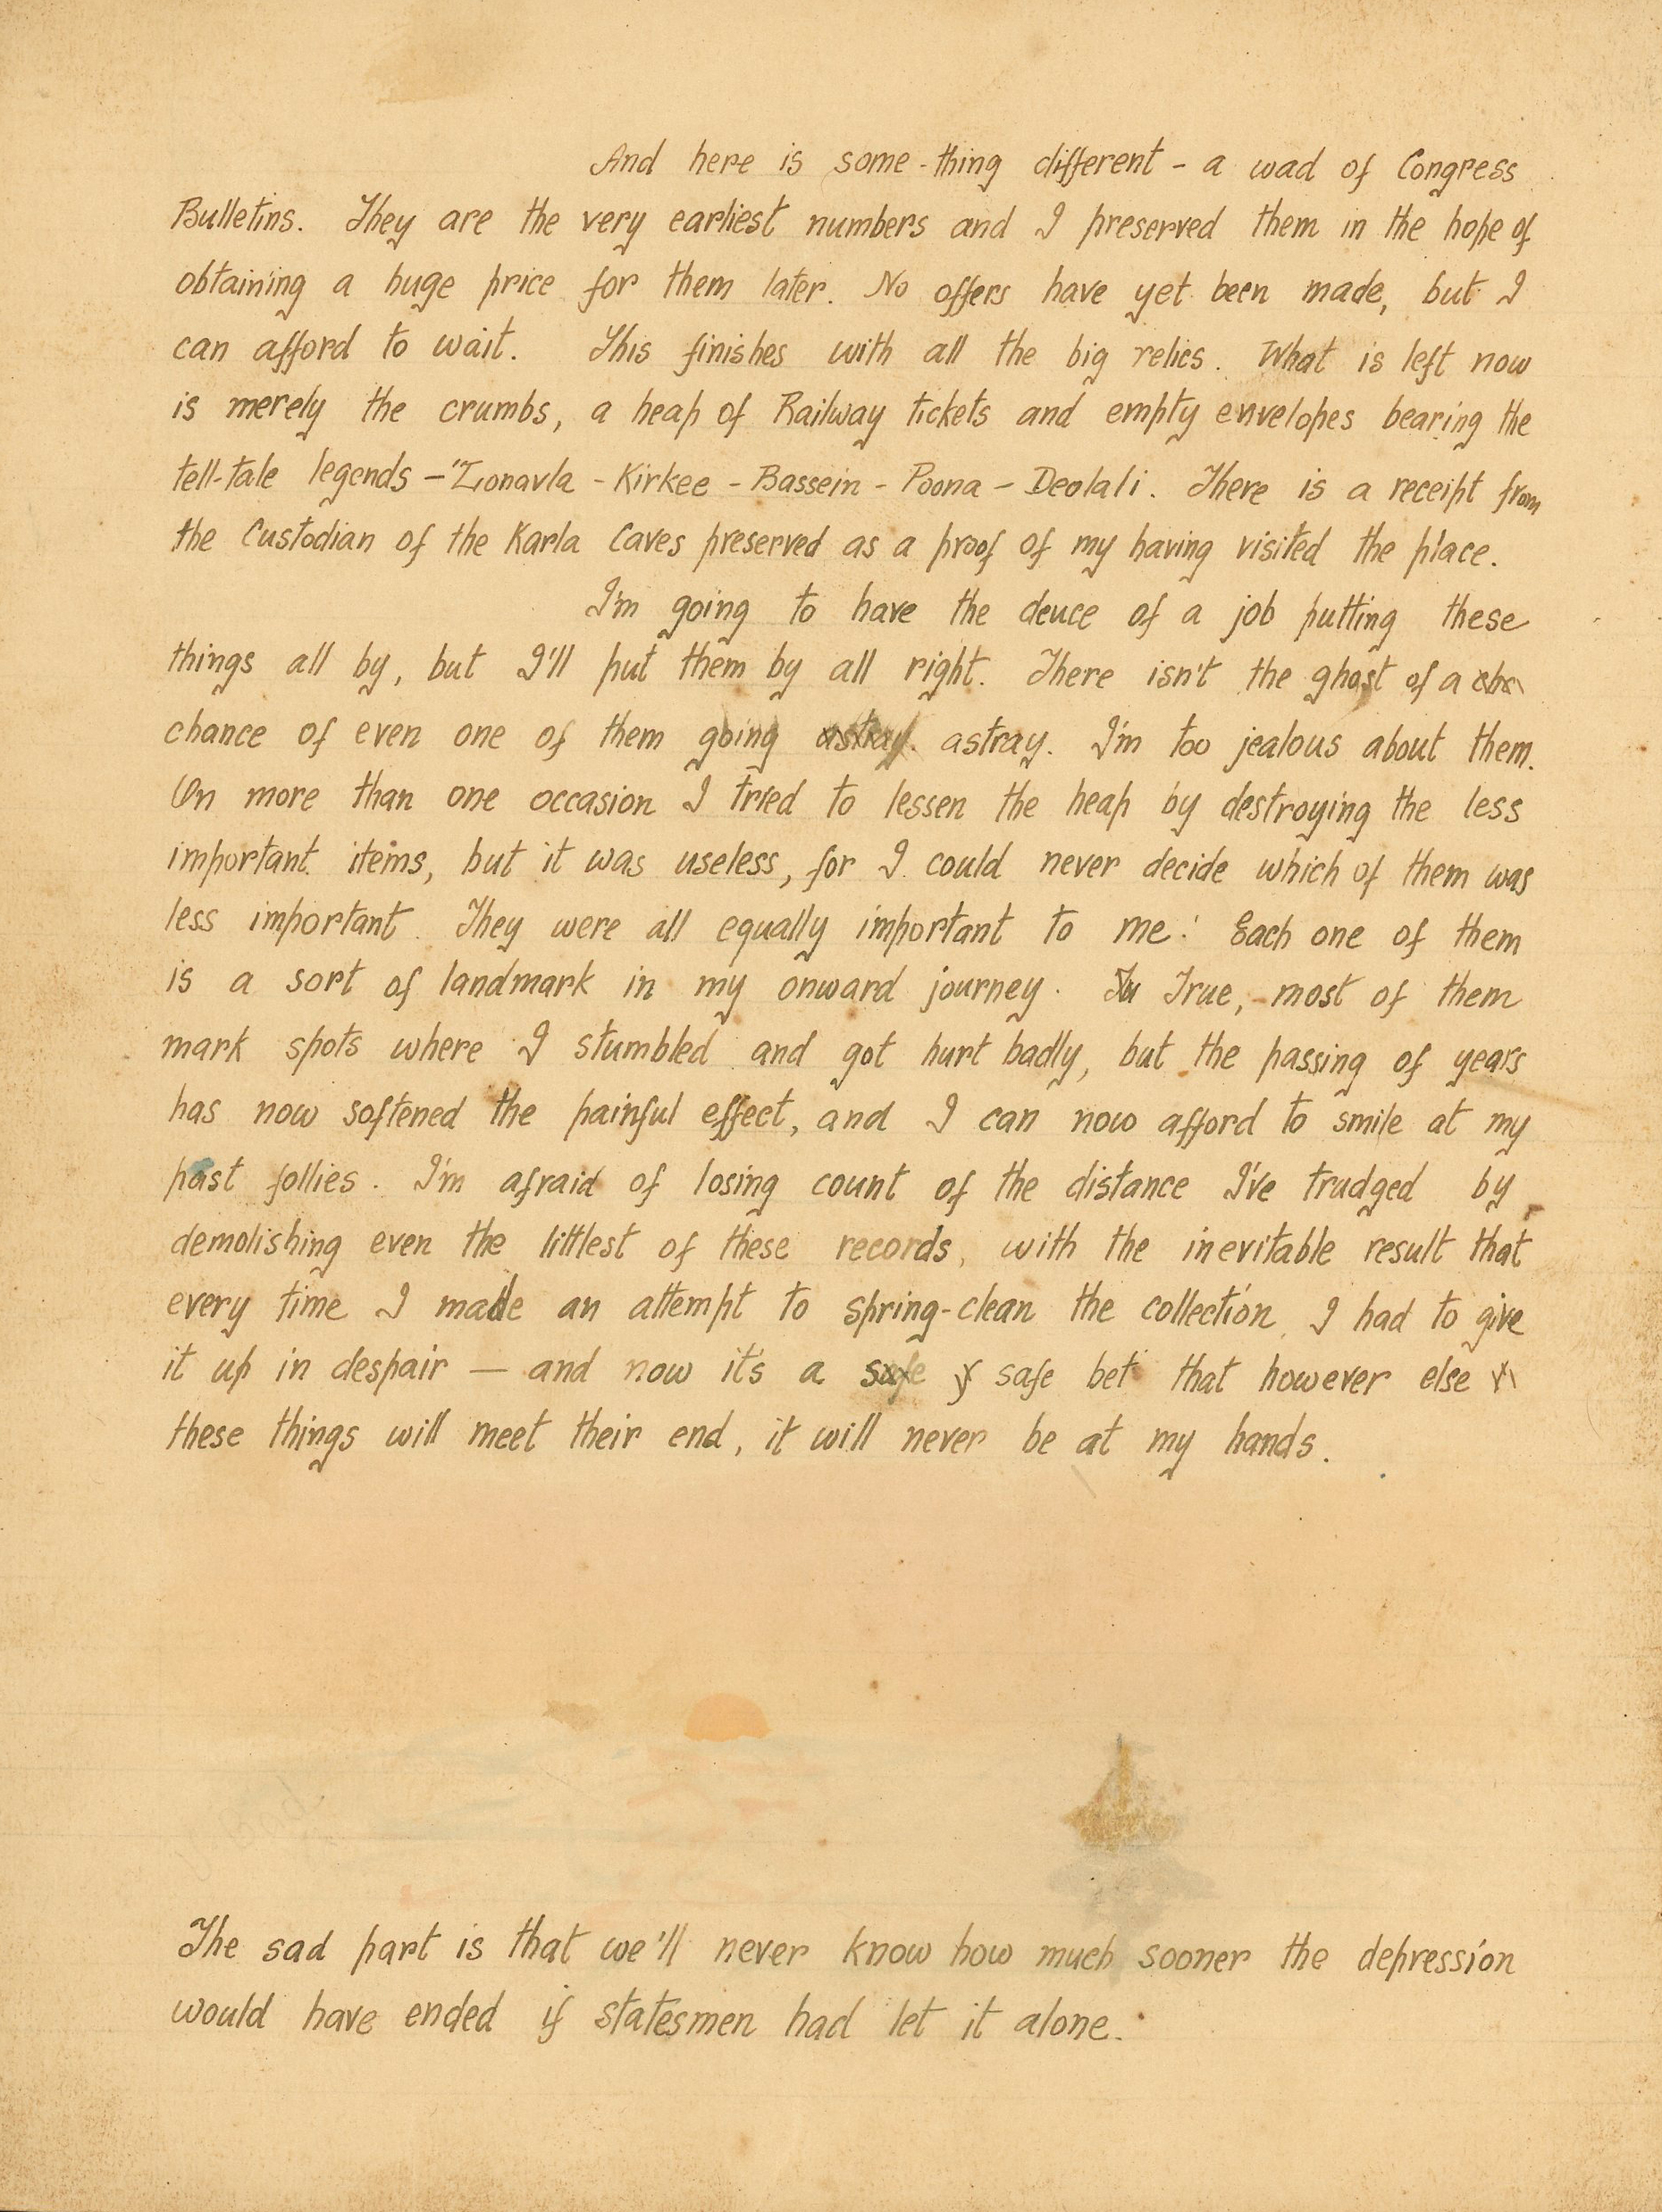 And here is some-thing different - a wad of Congress
Bulletins. They are the very earliest numbers and I preserved them in the hope of
obtaining a huge price for them later. No offers have yet been made, but I
can afford to wait. This finishes with all the big relics. What is left now
is merely the crumbs, a heap of Railway tickets and empty envelopes bearing the
tell-tale legends - "Lonavla - Kirkee - Bassein - Poona - Deolali. There is a receipt from
the Custodian of the Karla Caves preserved as a proof of my having visited the place.
I'm going to have the deuce of a job putting these
things all by, but I'll put them by all right. There isn't the ghost of a
chance of even one of them going astray. astray. I'm too jealous about them.
On more than one occasion I tried to lessen the heap by destroying the less
important items, but it was useless, for I could never decide which of them was
less important. They were all equally important to me! Each one of them
is a sort of landmark in my onward journey. True, most of them
mark spots where I stumbled and got hurt badly, but the passing of years
has now softened the painful effect, and I can now afford to smile at my
past follies. I'm afraid of losing count of the distance I've trudged by
demolishing even the littlest of these records, with the inevitable result that
every time I made an attempt to spring-clean the collection, I had to give
it up in despair — and now it's a safe safe bet that however else
these things will meet their end, it will never be at my hands.
The sad part is that we'll never know how much sooner the depression
would have ended if statesmen had let it alone.